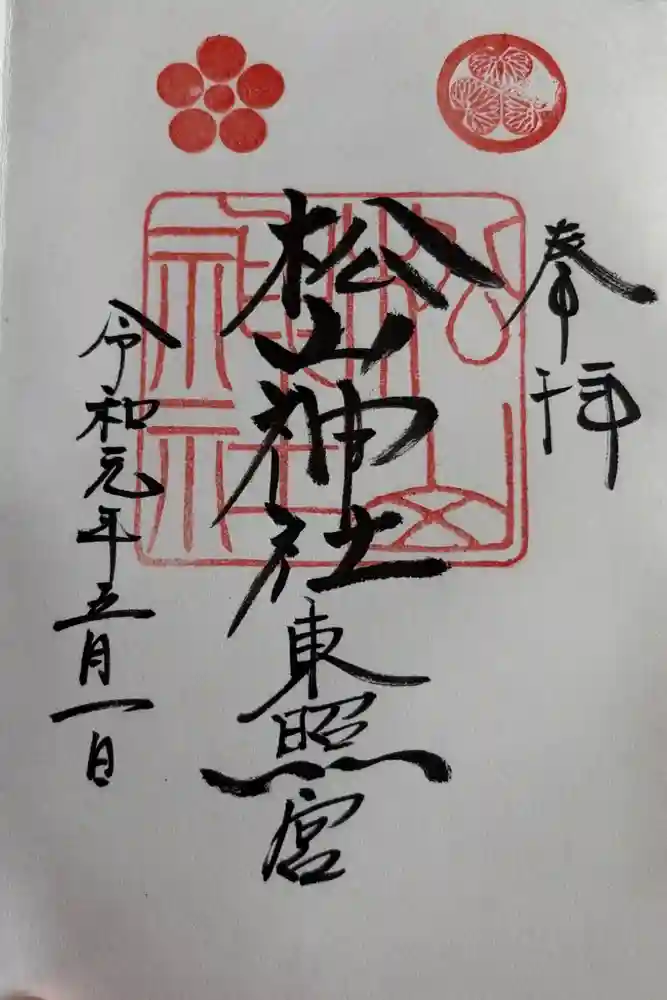 奉拝
松山神社
東照宮
令和元年五月一日
松山神社